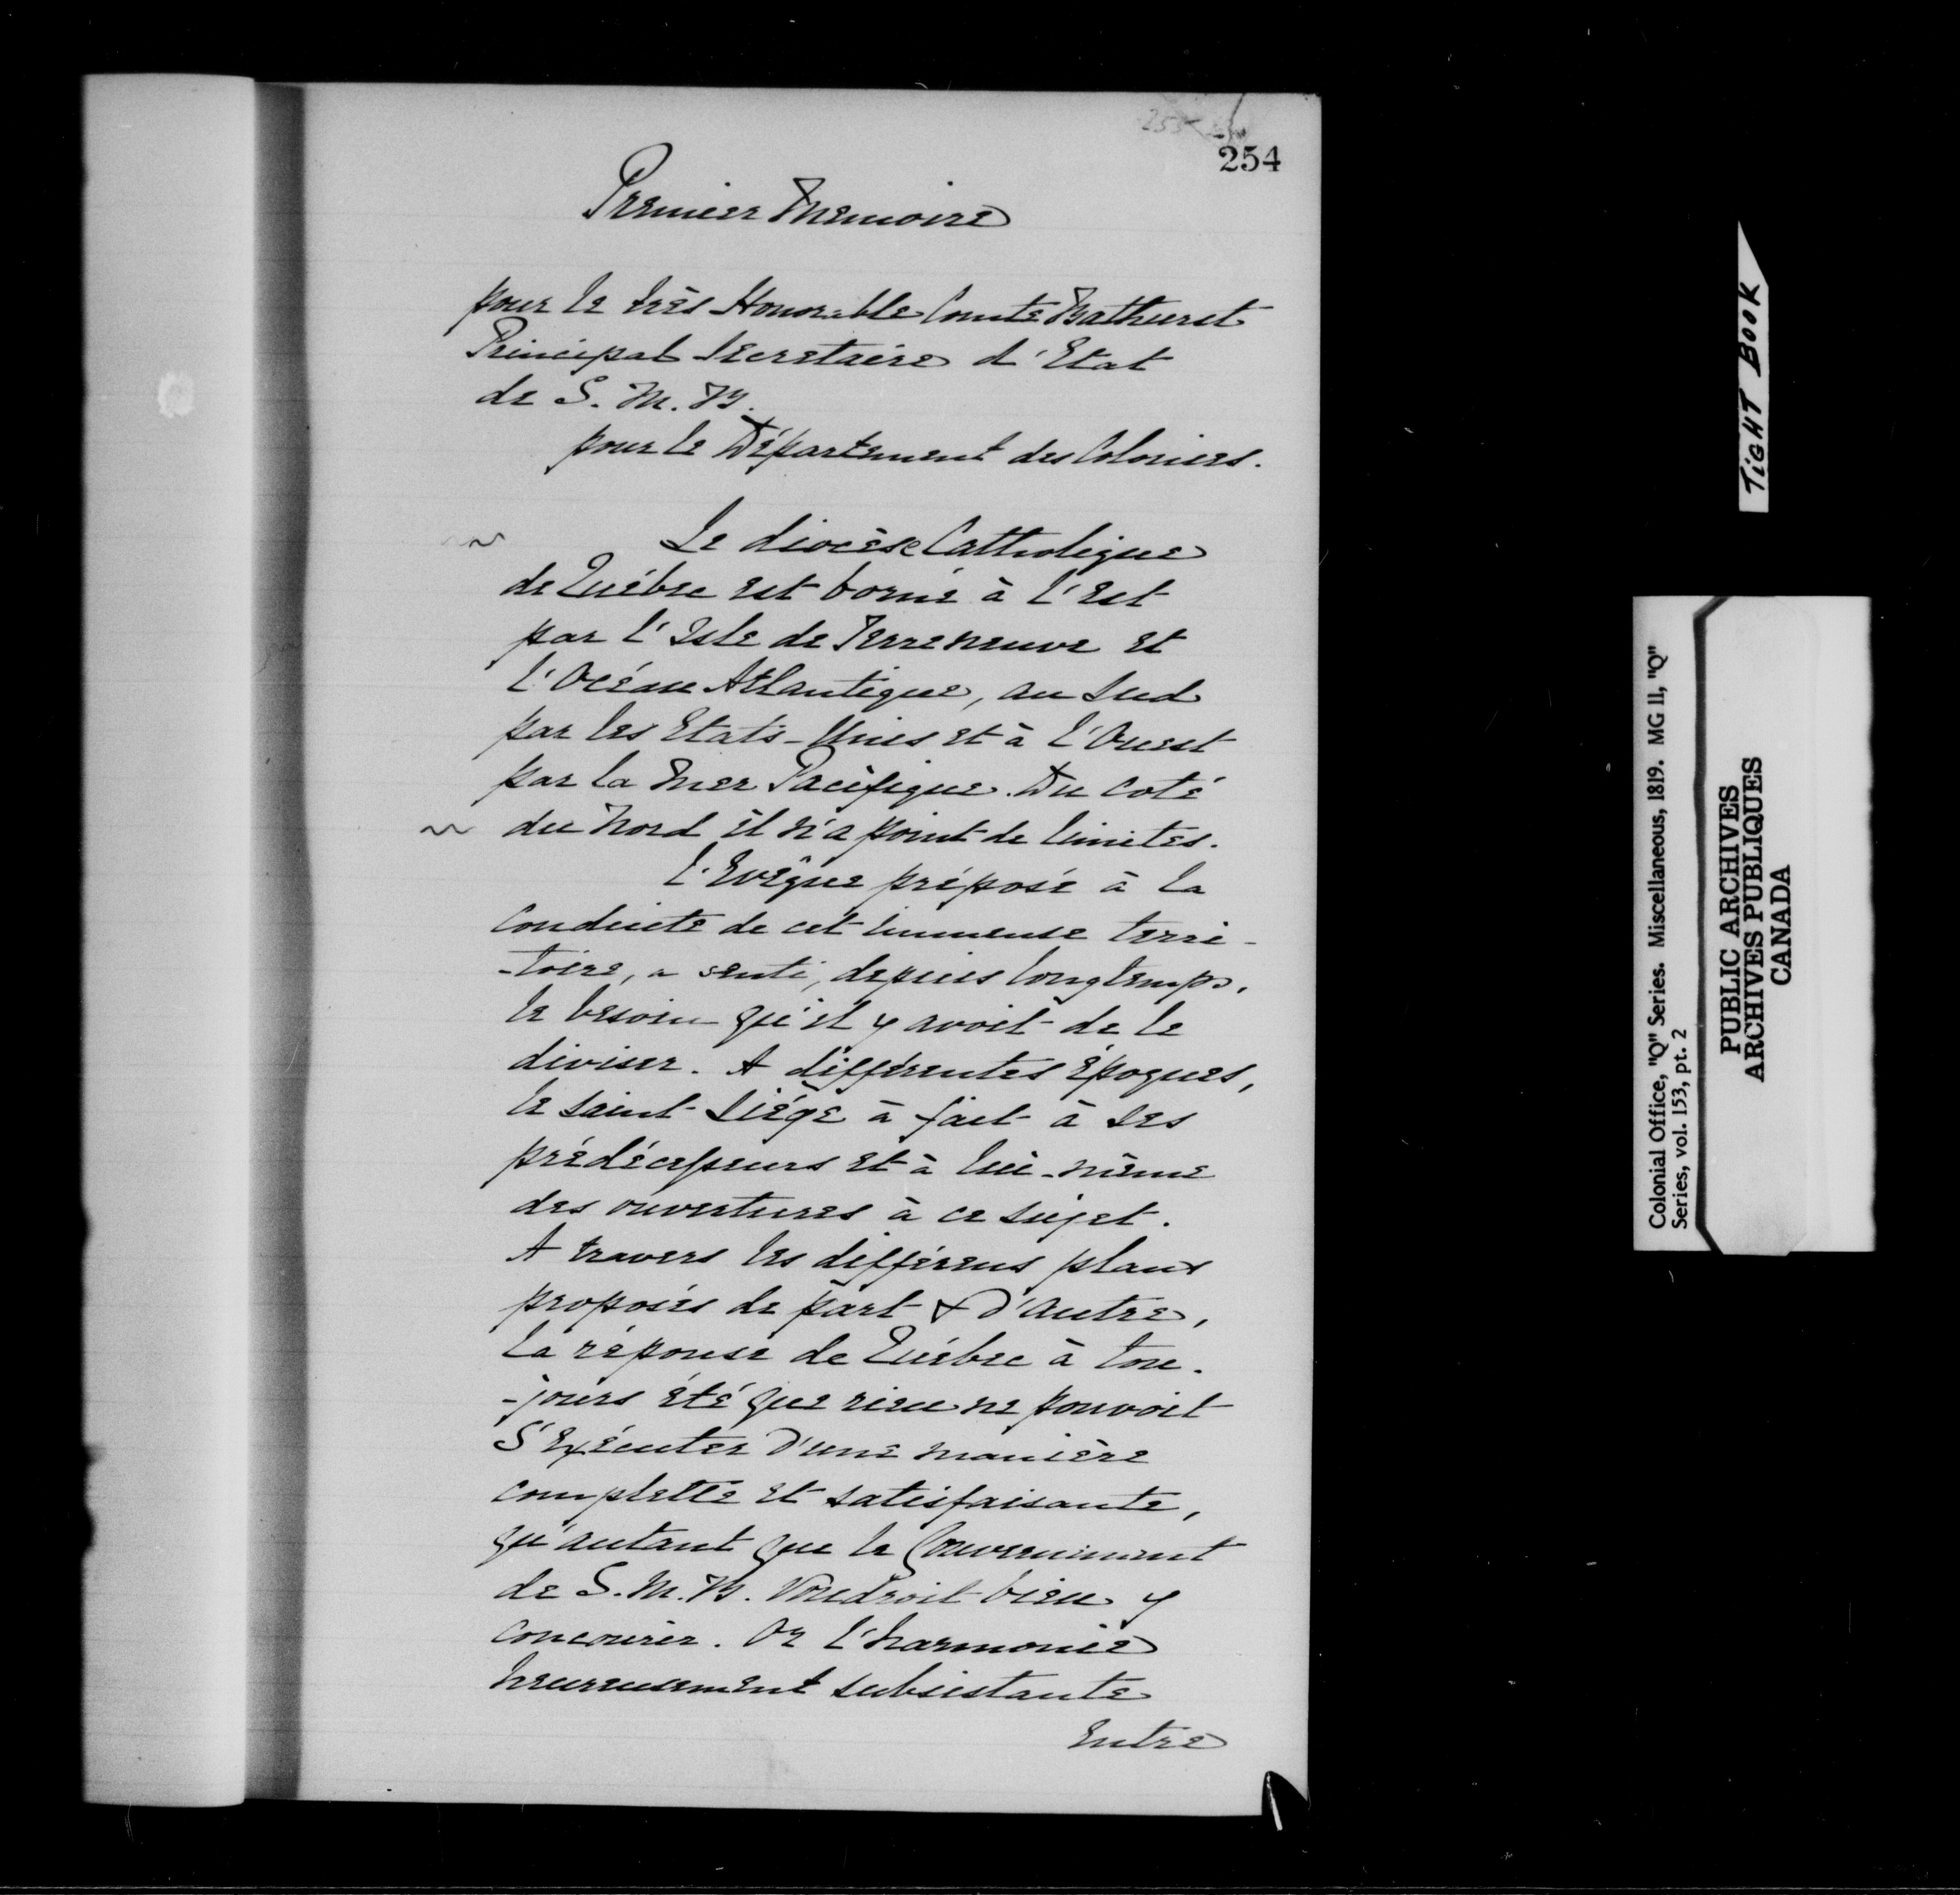 254
Premier Memoire
pour le très Honorable Comte Bathurst
Principal Secretaire d'Etat
de S. M. B.
pour le Département des Colonies.
Le diocèse Catholique
de Québec est borné à l'est
par l'Isle de Terreneuve et
l'Océan Atlantique, au Sud
par les Etats-Unis et à l'Ouest
par la Mer Pacifique. Du coté
du Nord il n'a point de limites.
L'Evêque préposé à la
conduite de cet immense terri-
-toire, a senti, depuis longtemps,
le besoin qu'il y avoit de le
diviser. A différentes Epoques,
le Saint-Siége à fait à ses
prédécesseurs et à lui-même
des ouvertures à ce sujet.
A travers les différens plans
proposés de part & d'autre,
la réponse de Québec à tou-
-jours été que rien ne pouvoit
s'exécuter d'une manière
complette et satisfaisante,
qu'autant que le Gouvernement
de S. M. B. voudroit bien y
concourir. Or l'harmonie
heureusement subsistante
Entre
TIGHT BOOK
Colonial Office, "Q" Series. Miscellaneous, 1819. MG 11, "Q"
Series, vol. 153, pt. 2
PUBLIC ARCHIVES
ARCHIVES PUBLIQUES
CANADA